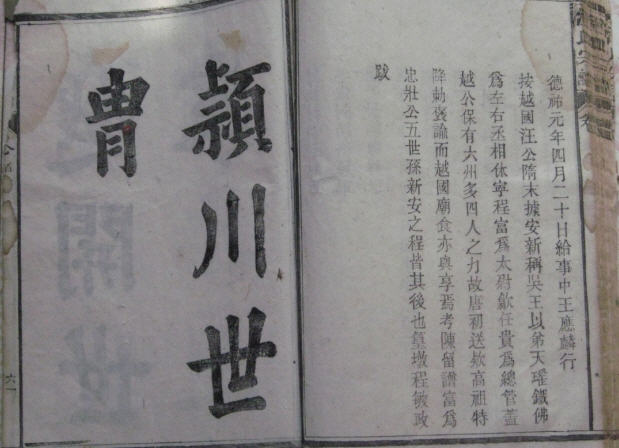 德祐元年四月二十日給事中王應麟行
按越國汪公隋末據安新稱吳王以弟天瑤鐵佛
爲左右丞相休寧程富爲太尉歙任貴爲總管蓋
越公保有六州多四人之力故唐初送欵高祖特
降勅褒諭而越國廟食亦與享焉考陳留譜富爲
忠壯公五世孫新安之程皆其後也篁墩程敏政
跋
頴川世
胄